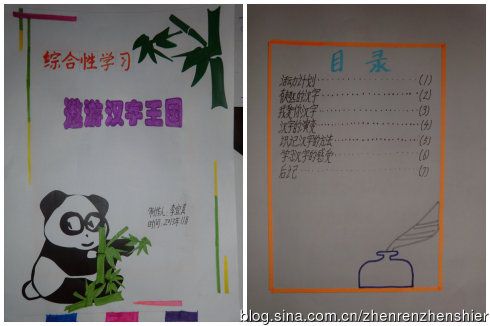 综合性学习
遨游汉字王国
制作人:李宜真
时间:2013年11月
目录
活动计划 ……………… (1)
有趣的汉字 ……………… (2)
我爱你汉字 ……………… (3)
汉字的演变 ……………… (4)
识记汉字的方法 ……………… (5)
学习汉字的感受 ……………… (6)
后记 ……………… (7)
blog.sina.com.cn/zhenrenzhenshier